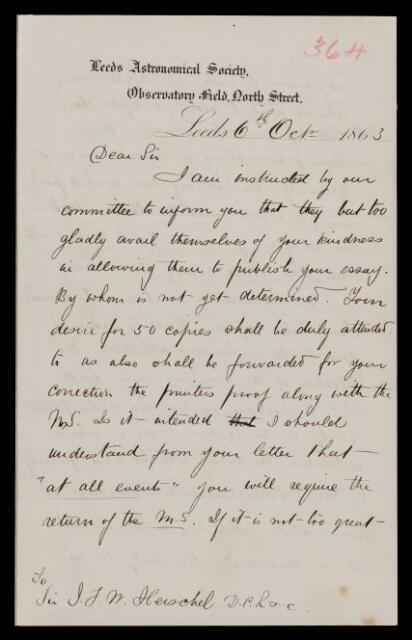 364
Leeds Astronomical Society.
Observatory Field, North Street.
Leeds 6th Octr 1863
Dear Sir
I am instructed by our
committee to inform you that they but too
gladly avail themselves of your kindness
in allowing them to publish your essay.
By whom is not yet determined. Your
desire for 50 copies shall be duly attended
to as also shall be forwarded for your
correction the printers proof along with the
M.S. Is it intended that I should
understand from your letter that
"at all events" you will require the
return of the M.S. If it is not too great
To
Sir J. F. W. Herschel D.C.L &c.